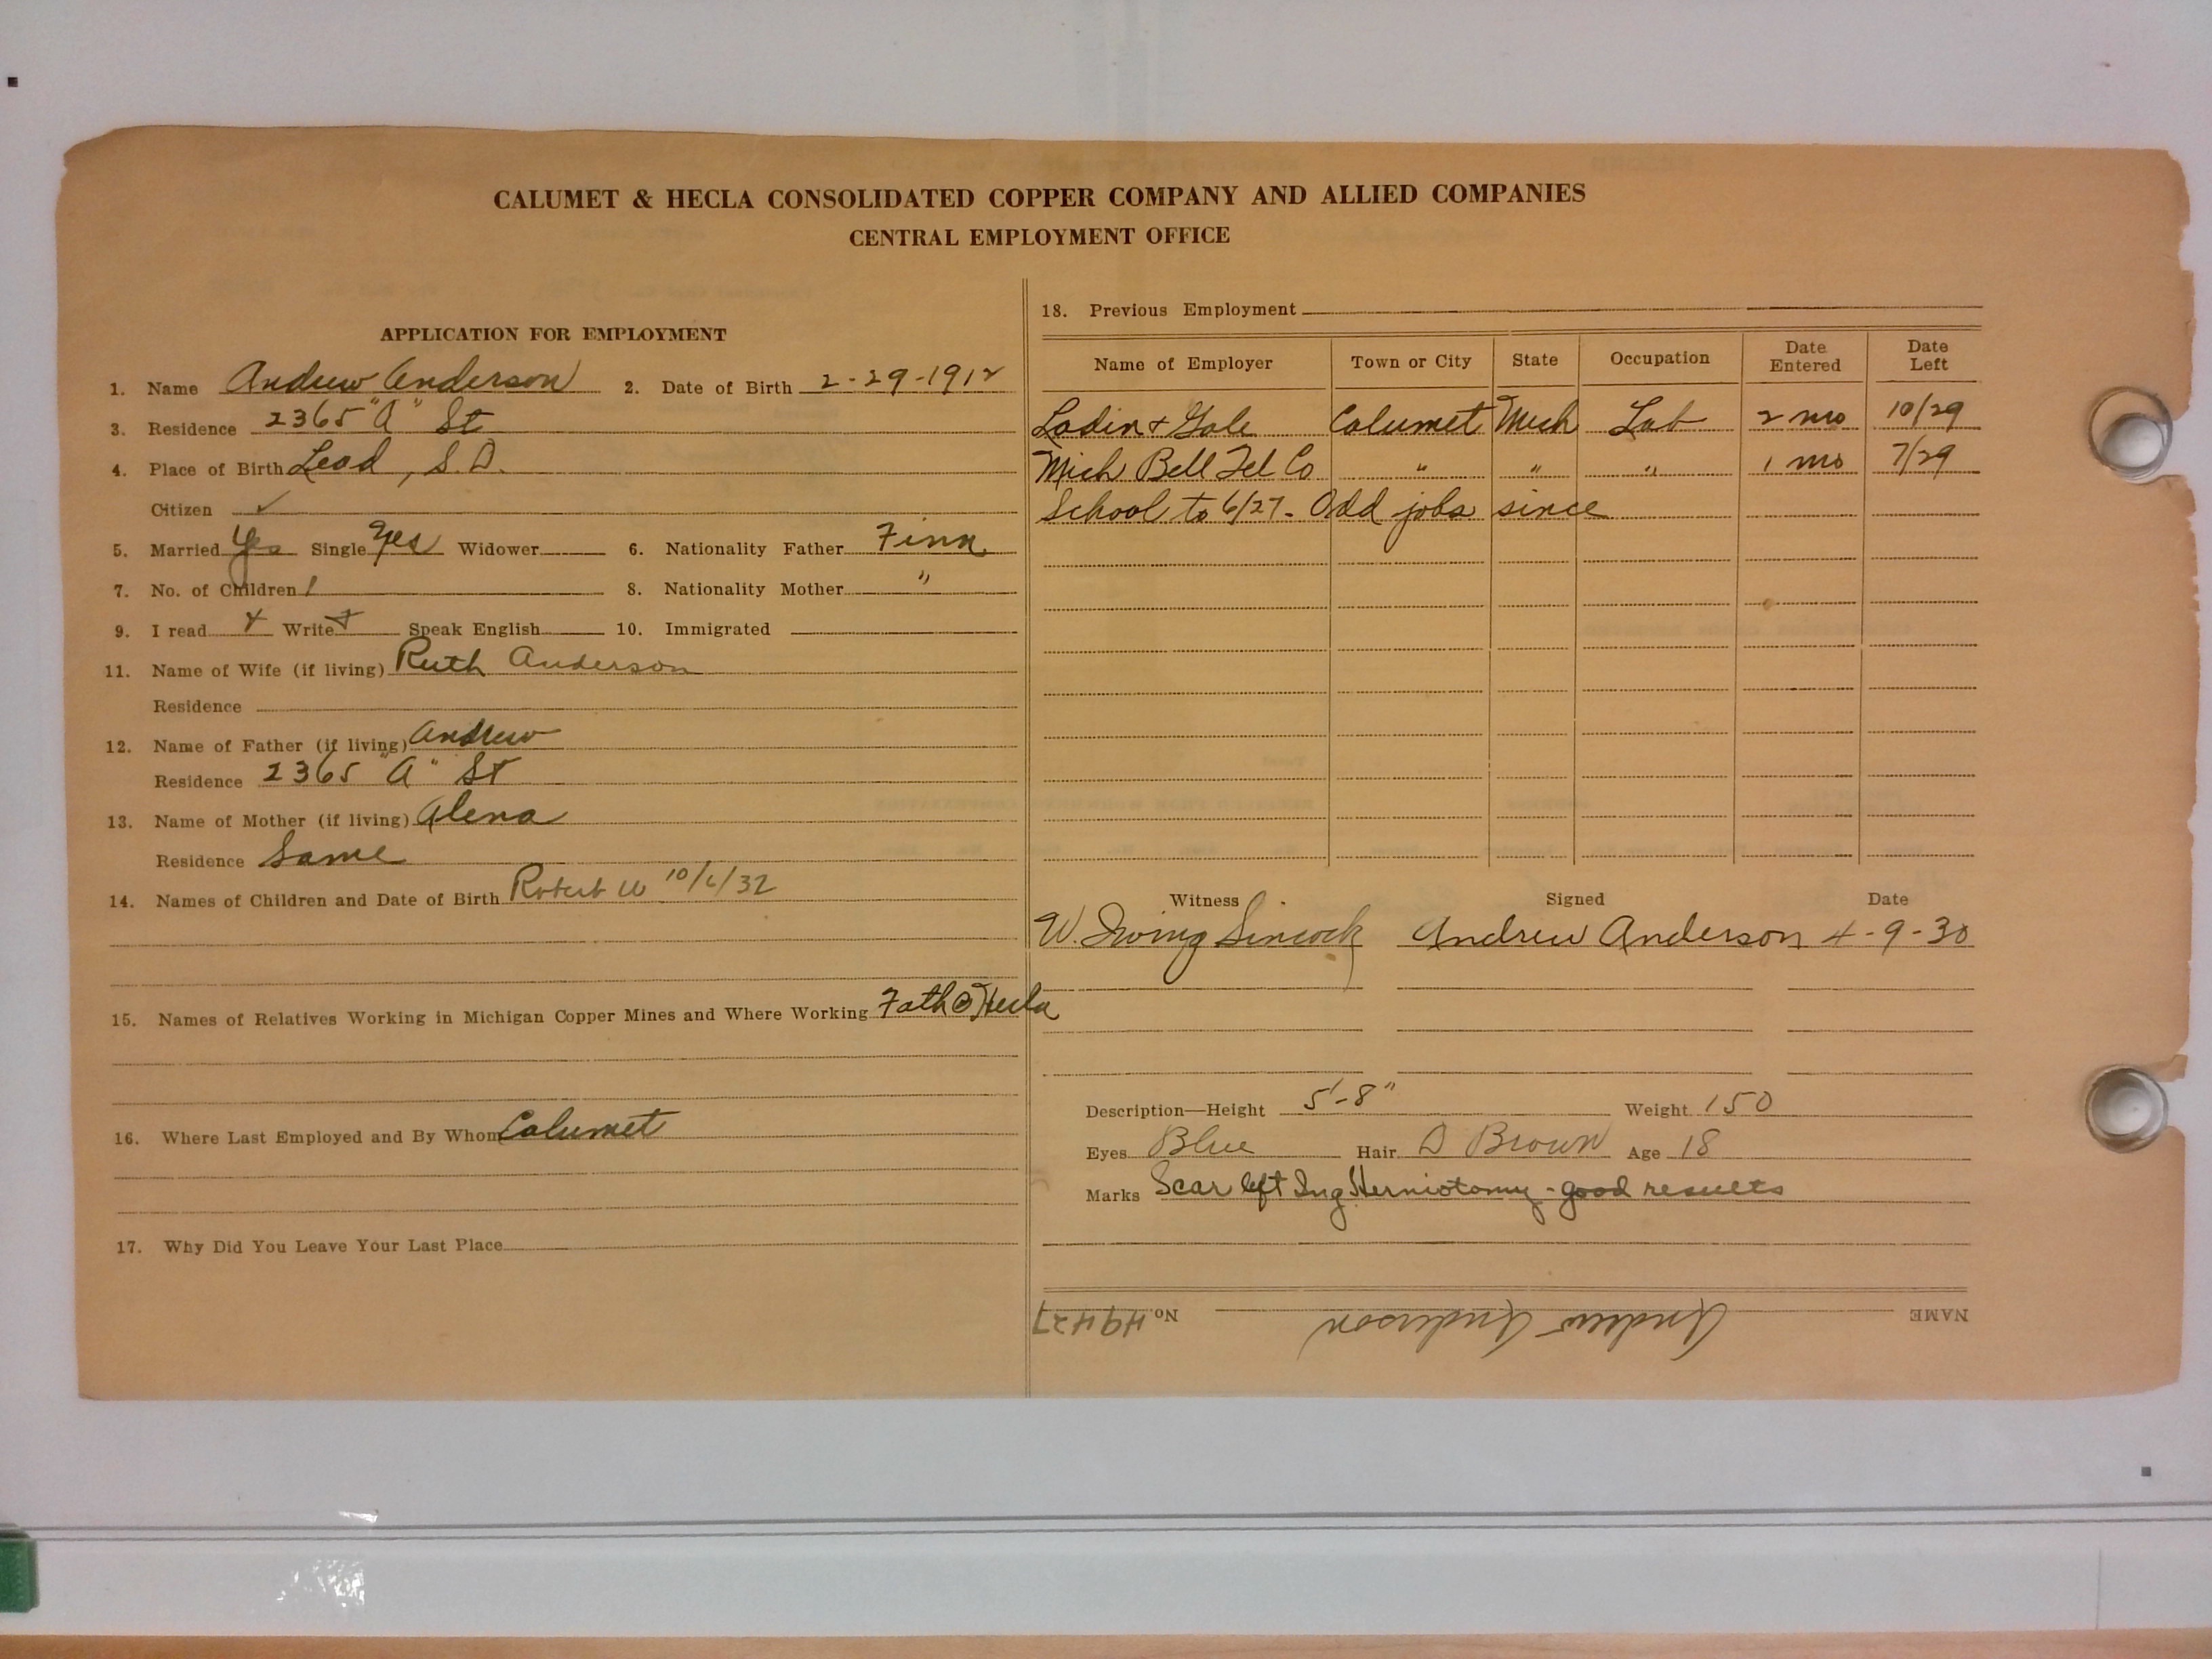 CALUMET & HECLA CONSOLIDATED COPPER COMPANY AND ALLIED COMPANIES
CENTRAL EMPLOYMENT OFFICE
APPLICATION FOR EMPLOYMENT
1. Name Andrew Anderson 2. Date of Birth 2-29-1912
3. Residence 2365 "A" St
4. Place of Birth Lead, S.D.
Citizen ✓
5. Married Yes Single Yes Widower 6. Nationality Father Finn
7. No. of Children 1 8. Nationality Mother "
9. I read + Write + Speak English 10. Immigrated
11. Name of Wife (if living) Ruth Anderson
Residence
12. Name of Father (if living) Andrew
Residence 2365 "A" St
13. Name of Mother (if living) Alena
Residence Same
14. Names of Children and Date of Birth Robert W 10/6/32
15. Names of Relatives Working in Michigan Copper Mines and Where Working Fath @ Hecla
16. Where Last Employed and By Whom Calumet
17. Why Did You Leave Your Last Place
18. Previous Employment
Name of Employer Town or City State Occupation Date Entered Date Left
Lodin + Gole Calumet Mich Lab 2 mo 10/29
Mich Bell Tel Co " " " 1 mo 7/29
School to 6/27 - Odd jobs since
Witness Signed Date
W. Irving Sincock Andrew Anderson 4-9-30
Description—Height 5'-8" Weight 150
Eyes Blue Hair D Brown Age 18
Marks Scar left Ing Herniotomy - good results
NAME Andrew Anderson No. 49427